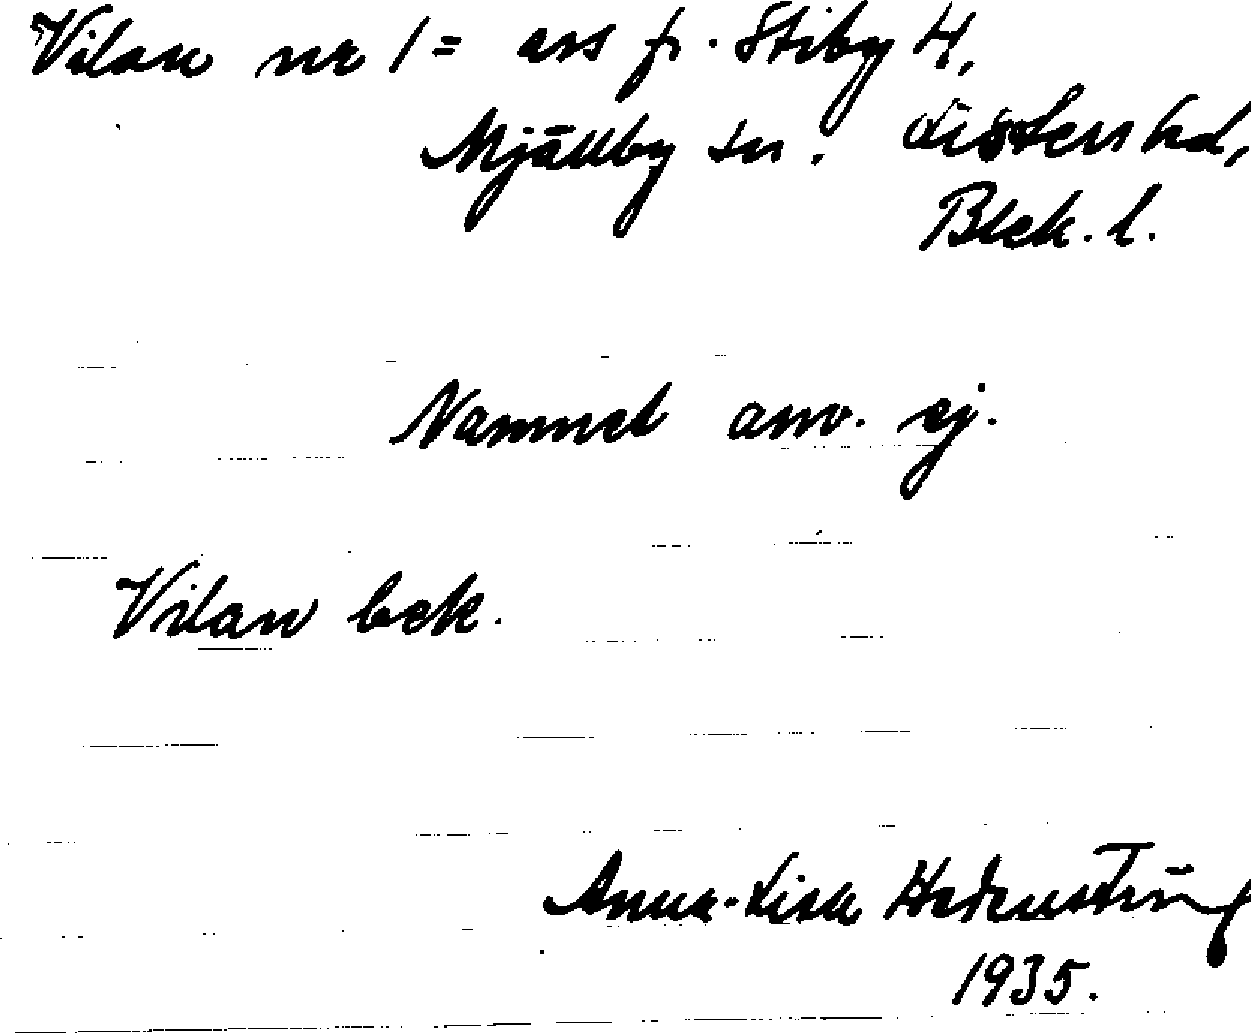 Vilan nr 1 = avs fr. Stiby 4,
Mjällby sn. Listers hd,
Blek. l.
Namnet anv. ej.
Vilan bek.
Anna-Lisa
1935.